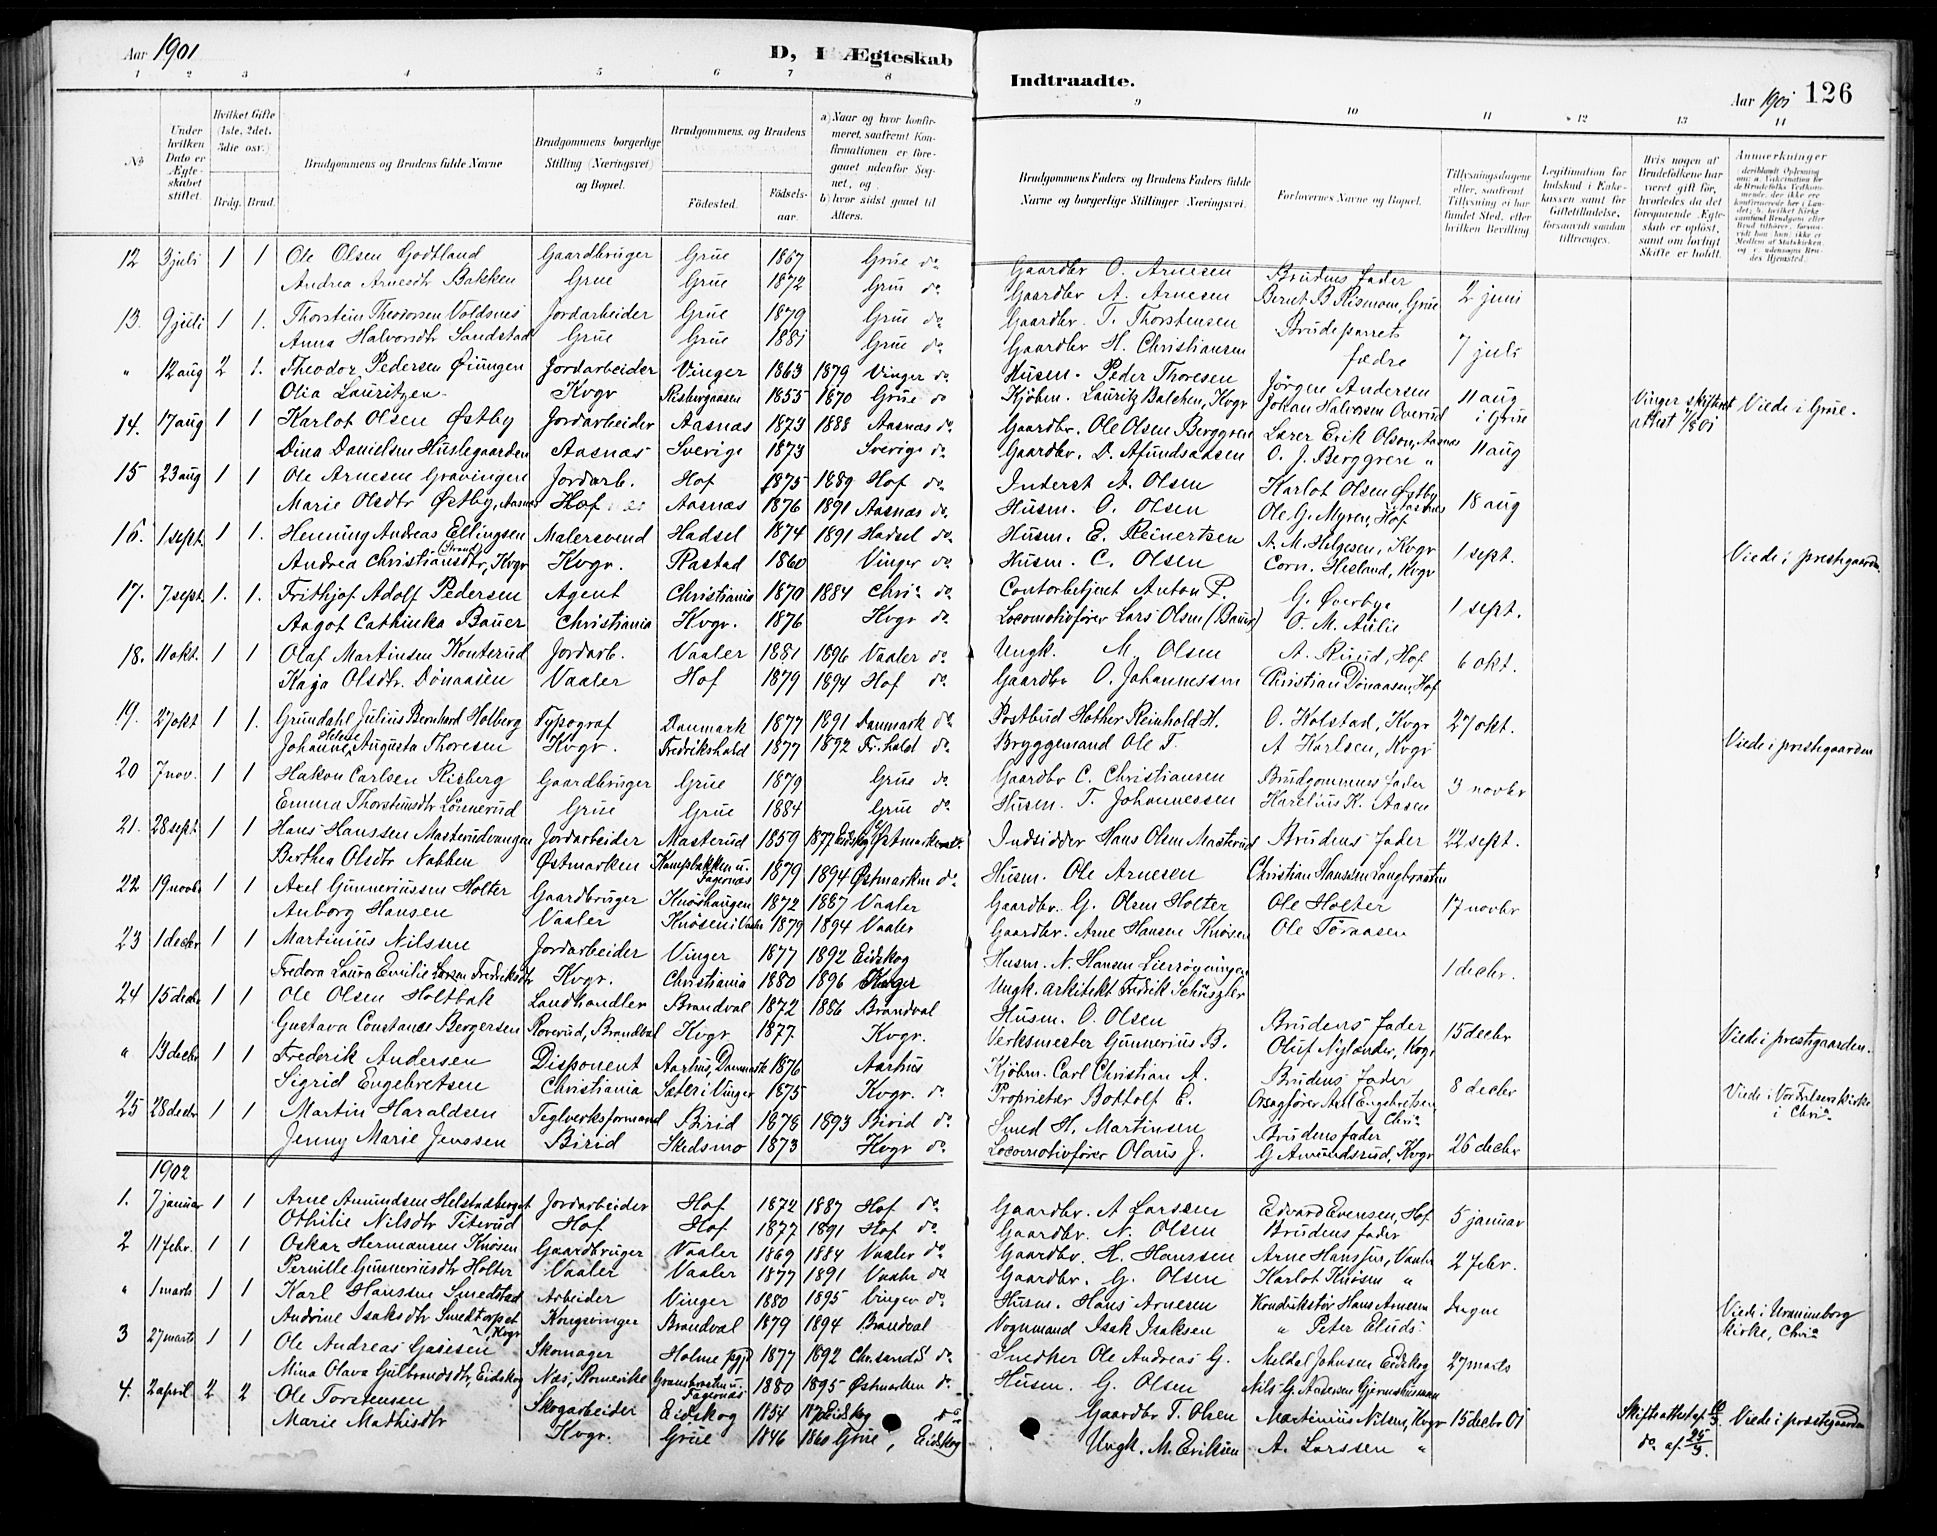 Aar 1901
D, I Ægteskab
Indtraadte.
Aar 1901 126
1 2 3 4 5 6 7 8 9 10 11 12 13 14
No
Under hvilken Dato er Ægteskabet stiftet.
Hvilket Gifte (1ste, 2det, 3die osv.)
Brdg. Brud.
Brudgommens og Brudens fulde Navne
Brudgommens borgerlige Stilling (Næringsvei) og Bopæl.
Brudgommens og Brudens
Födested.
Födselsaar.
a) Naar og hvor konfirmeret, saafremt Konfirmationen er foregaaet udenfor Sognet, og
b) hvor sidst gaaet til Alters.
Brudgommens Faders og Brudens Faders fulde Navne og borgerlige Stillinger (Næringsvei).
Forlovernes Navne og Bopæl.
Tillysningsdagene eller, saafremt Tillysning ei har fundet Sted, efter hvilken Bevilling
Legitimation for Indskud i Enkekassen samt for Giftetilladelse, forsaavidt saadan tiltrænges.
Hvis nogen af Brudefolkene har været gift før, hvorledes da det foregaaende Ægteskab er opløst, samt om lovligt Skifte er holdt.
Anmærkninger
12 3 juli 1 1 Ole Olsen Godtland Gaardbruger Grue 1867 Grue do Gaardbr O. Arnesen Brudens fader 2 juni
Andrea Arnesdtr Bakken Grue Grue 1872 Grue do Gaardbr A. Arnesen Bernt B. Rismoen, Grue
13. 9 juli 1 1. Thorstein Theodorsen Voldsnes Jordarbeider Grue 1879 Grue do Gaardbr. T. Thorstensen Brudeparrets 7 juli
Anna Halvorsdtr Sandstad Grue Grue 1881 Grue do Gaardbr H. Christiansen fædre
" 12 aug 2 1. Theodor Pedersen Øiungen Jordarbeider Vinger 1863 1879 Vinger do Husm. Peder Thoresen Jörgen Andersen 11 aug Vinger skifteret Viede i Grue.
Olia Lauritzen Kvgr Risbergaasen 1855 1870 Grue do Kjöbm. Lauritz Balchen, Kvgr Johan Halvorsen Overud i Grue attest
14. 17 aug 1 1 Karlot Olsen Østby Jordarbeider Aasnæs 1873 1888 Aasnæs do Gaardbr. Ole Olsen Berggren Lærer Erik Olsen, Aasnes 11 aug
Dina Danielsen Huslegaarden Aasnæs Sverige 1873 Sverige do Gaardbr. D. Afundsaasen O. J. Berggren "
15 23 aug 1 1 Ole Arnesen Gravingen Jordarb. Hof 1875 1889 Hof do Inderst A. Olsen Karlot Olsen Østby Aasnæs 18 aug
Marie Olsdtr Østby, Aasnæs Hof Aasnæs 1876 1891 Aasnæs do Husm. O. Olsen Ole G. Myren, Hof
16. 1 sept. 1 1. Henning Andreas Ellingsen Malersvend Hadsel 1874 1891 Hadsel do Husm. E. Reinertsen A. M. Helgesen, Kvgr 1 sept. Viede i prestegaarden.
Andrea Christiansdtr Strand, Kvgr Kvgr. Rastad 1860 Vinger do Husm. C. Olsen Corn. Hieland, Kvgr
17. 7 sept. 1. 1. Frithjof Adolf Pedersen Agent Christiania 1870 1884 Chria do Contorbetjent Anton P. G. Øverbye 1 sept.
Aagot Cathinka Bauer Christiania Kvgr. 1876 Kvgr do Locomotivfører Lars Olsen (Bauer) O. M. Aulie
18. 11 okt. 1 1 Olaf Martinsen Konterud Jordarb. Vaaler 1881 1896 Vaaler do Ungk. M. Olsen A. Ruud, Hof 6 okt.
Kaja Olsdtr. Dönaasen Vaaler Hof 1879 1894 Hof do Gaardbr O. Johannessen Christian Dönaasen, Hof
19. 27 okt 1 1. Grundahl Julius Bernhard Holberg Typograf Danmark 1877 1891 Danmark do Postbud Hother Reinhold H. O. Kolstad, Kvgr 27 okt. Viede i prestegaarden
Johanne Helene Augusta Thoresen Kvgr. Fredrikshald 1877 1892 Fr.hald do Bryggemand Ole T. A Karlsen, Kvgr
20 7 nov. 1 1 Hakon Carlsen Risberg Gaardbruger Grue 1879 Grue do Gaardbr C. Christiansen Brudgommens fader 3 novbr
Emma Thorsteinsdtr Lönnerud Grue Grue 1884 Grue do Husm. T. Johannessen Karelius K. Aasen
21. 28 sept. 1 1 Hans Hanssen Masterudvangen Jordarbeider Masterud 1859 1877 Eidskog Østmarken Indsidder Hans Olsen Masterud Brudens fader 22 sept.
Berthea Olsdtr Nabben Østmarken Kampbakken u. Fagernæs 1879 1894 Østmarken do Husm. Ole Arnesen Christian Hanssen Langbraaten
22 19 novbr 1 1 Axel Gunneriussen Holter Gaardbruger Knöshaugen 1872 1887 Vaaler Gaardbr. G. Olsen Holter Ole Holter 17 novbr
Anborg Hansen Vaaler Knösen i Vaaler 1879 1894 Vaaler Gaardbr. Arne Hansen Knösen Ole Töraasen
23 1 decbr 1 1 Martinius Nilssen Jordarbeider Vinger 1877 1892 Eidskog Husm. N. Hansen 1 decbr.
Fredora Laura Emilie Larsen Fredriksdtr Kvgr. Christiania 1880 1896 Ungk. arkitekt Fredrik Schüszler
24 15 decbr 1 1 Ole Olsen Holtbak Landhandler Brandval 1872 1886 Brandval Husm. O. Olsen Brudens fader 15 decbr Viede i prestegaarden.
Gustava Constance Bergersen Roverud, Brandval Kvgr 1877. Kvgr. Verksmester Gunnerius B. Oluf Nylænder, Kvgr
" 13 decbr 1 1 Frederik Andersen Disponent Aarhus, Danmark 1876 Aarhus Kjöbm. Carl Christian A. Brudens fader 8 decbr Viede i Vor Frelsers kirke i Chria
Sigrid Engebretsen Christiania Sæter i Vinger 1875 Kvgr. do Proprietær Bottolf E. Axel Engebretsen Chria
25 28 decbr 1 1 Martin Haraldsen Teglverksformand Birid 1878 1893 Birid do Smed H. Martinsen Brudens fader 26 decbr
Jenny Marie Jenssen Birid Skedsmo 1873 Kvgr do Locomotivfører Olaus J. G Amundsrud, Kvgr
1902
1. 7 januar 1 1 Arne Amundsen Helstadberget Jordarbeider Hof 1872 1887 Hof do Gaardbr. A Larssen Edvard Evensen, Hof 5 januar
Othilie Nilsdtr Titerud Hof Hof 1877 1891 Hof do Gaardbr. N. Olsen Brudens fader
2 11 febr. 1 1 Oskar Hermansen Knösen Gaardbruger Vaaler 1869 1884 Vaaler do Gaardbr. H. Hanssen Arne Hansen, Vaaler 2 febr.
Pernille Gunneriusdtr Holter Vaaler Vaaler 1877 1891 Vaaler do Gaardbr. G. Olsen Karlot Knösen "
" 1 marts 1 1 Karl Hansen Smedstad Arbeider Vinger 1880 1895 Vinger do Husm. Hans Arnesen Konduktør Hans Arnesen Ingen Viede i Uranienborg kirke, Chria
Andrine Isaksdtr Smedtorpet Kvgr Kongsvinger Brandval 1879 1894 Brandval Vognmand Isak Isaksen " Peter Eluds
3 27 marts 1 1 Ole Andreas Gasesen Skomager Holme pgjd 1877 1892 Chr.sands do Snedker Ole Andreas G. Meldal Johnsen Eidskog 27 marts
Mina Olava Gulbrandsdtr, Eidskog Næs, Romerike Fagernæs 1880 1895 Østmarken do Husm. G. Olsen Nils G. Andersen
4. 2 april 2 2 Ole Torstensen Skogarbeider Eidskog 1854 Eidskog do Gaardbr T. Olsen Martinius Nilsen, Kvgr 15 decbr 01 Skifteattest af Viede i prestegaarden
Marie Mathisdtr Kvgr. Grue 1846 1860 Grue, Eidskog Ungk. M. Eriksen A. Larssen " do. af 25/3.